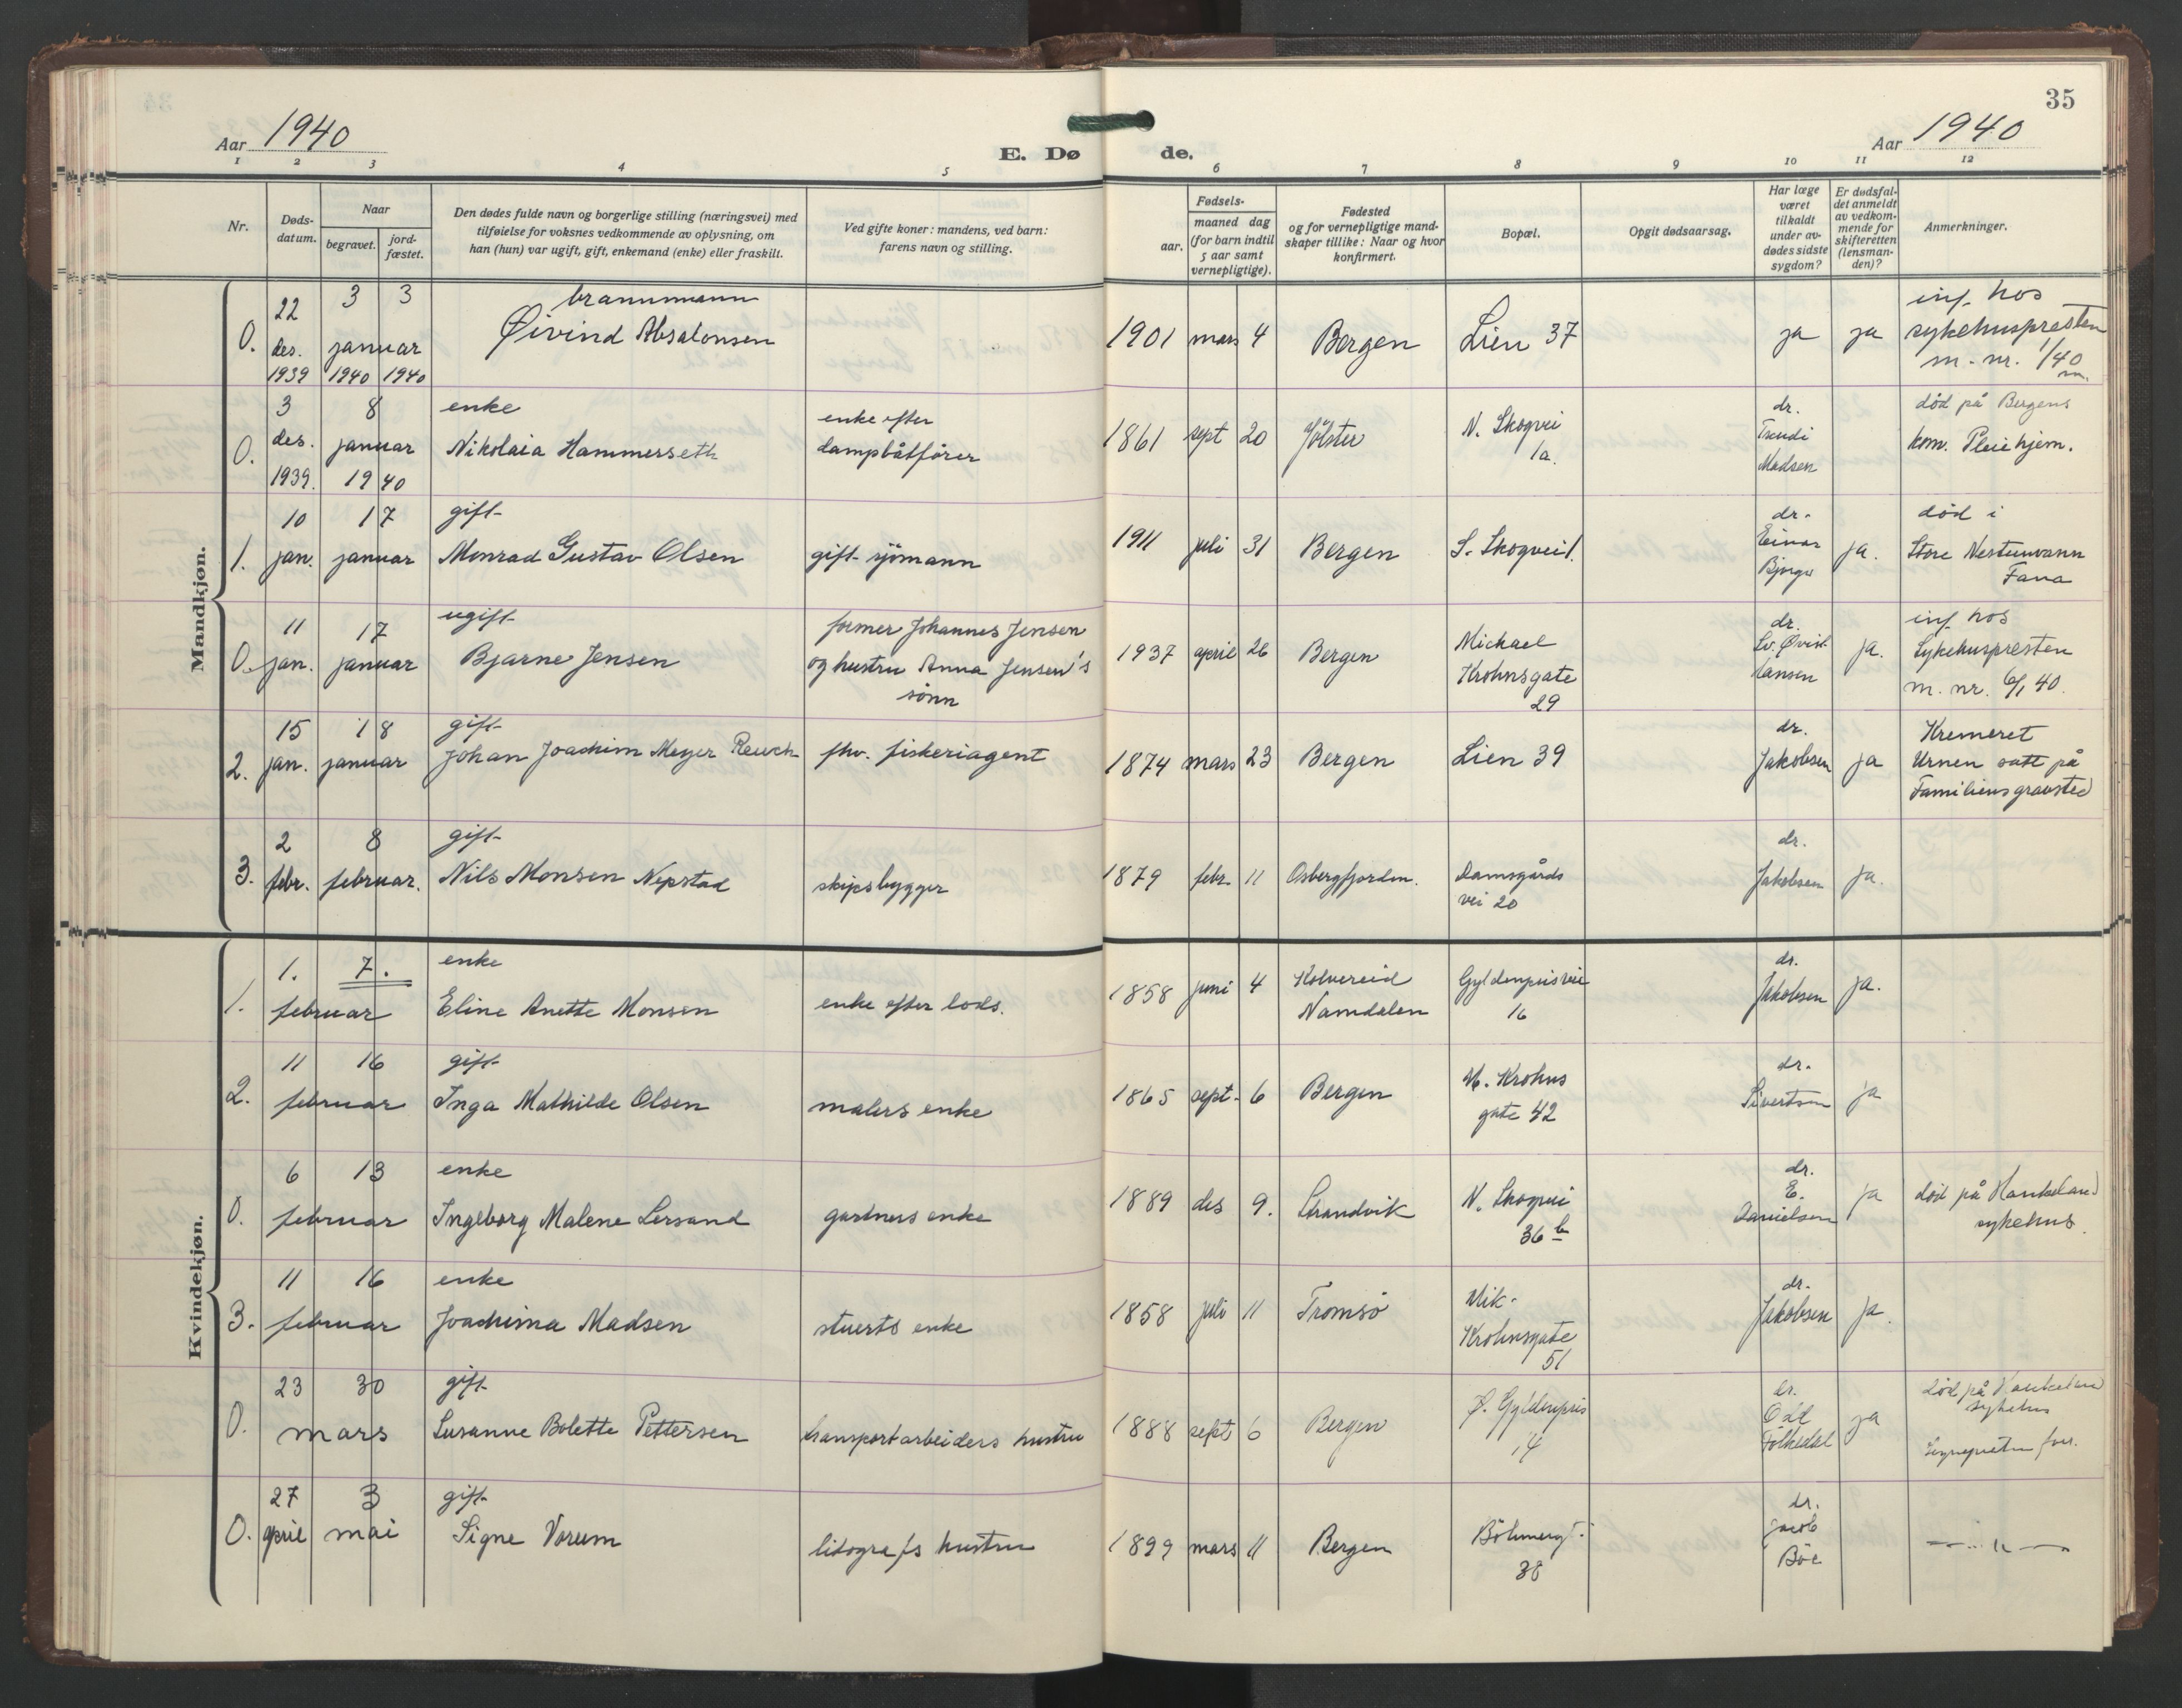 35
Aar 1940
E. Døde.
Aar 1940
1 2 3 4 5 6 7 8 9 10 11 12
Nr.
Døds-datum.
Naar
begravet.
jord-fæstet.
Den dødes fulde navn og borgerlige stilling (næringsvei) med
tilføielse for voksnes vedkommende av oplysning, om
han (hun) var ugift, gift, enkemand (enke) eller fraskilt.
Ved gifte koner: mandens, ved barn:
farens navn og stilling.
Fødsels-
aar.
maaned dag
(for barn indtil
5 aar samt
vernepligtige).
Fødested
og for vernepligtige mand-
skaper tillike: Naar og hvor
konfirmert.
Bopæl.
Opgit dødsaarsag.
Har læge
været
tilkaldt
under av-
dødes sidste
sygdom?
Er dødsfal-
det anmeldt
av vedkom-
mende for
skifteretten
(lensman-
den)?
Anmerkninger.
Mandkjøn.
0. 22 des. 1939 3 januar 1940 3 januar 1940 brannmann Øivind Absalonsen 1901 mars 4 Bergen Lien 37 ja ja inf. hos sykehuspresten m. nr. 1/40
0. 3 des. 1939. 8 januar 1940 enke Nikolaia Hammerseth enke efter dampbåtfører 1861 sept 20 Jølster N. Skogvei 1a. dr. Tschudi Madsen død på Bergens kom. Pleiehjem.
1. 10 jan. 17 januar gift Monrad Gustav Olsen gift sjømann 1911 juli 31 Bergen S. Skogvei 1. dr. Einar Bjørgo ja. død i Store Nestunvann Fana
0. 11 jan. 17 januar ugift Bjarne Jensen former Johannes Jensen og hustru Anna Jensen's sønn 1937 april 26 Bergen Mickael Krohnsgate 29 dr. ja. inf. hos Sykehuspresten m. nr. 6/1 40.
2. 15 jan. 18 januar gift Johan Joachim Meyer Reusch fhv. fiskeriagent 1874 mars 23 Bergen Lien 39 dr. Jakobsen ja Kremeret Urnen satt på Familiens gravsted
3. 2 febr. 8 februar. gift Nils Monsen Nepstad skipsbygger 1879 febr. 11 Damsgårds vei 20 dr. Jakobsen ja.
Kvindekjøn.
1. 1. 7. februar enke Eline Anette Monsen enke efter lods. 1858 juni 4 Kolvereid Namdalen Gyldenprisvei 16 dr. Jakobsen ja.
2. 11 16 februar gift Inga Mathilde Olsen malers enke 1865 sept. 6 Bergen M. Krohns gate 42 dr. Sivertsen ja
0. 6 13 februar enke Ingeborg Malene Lersand gartners enke 1889 des 9. Strandvik N. Skogvei 36 b dr. E. Danielsen ja død på Haukeland sykehus.
3. 11 16 februar enke Joachima Madsen stuerts enke 1858 juli 11 Tromsø Mik. Krohnsgate 51 dr. Jakobsen ja.
0. 23 30 mars gift Susanne Bolette Pettersen transportarbeiders hustru 1888 sept 6 Bergen Ø. Gyldenpris 14 dr. Odd Folkedal ja død på Haukeland sykehus
0. 27 april 3 mai gift Signe Vorum litografs hustru 1899 mars 11 Bergen Böhmergt. 38 dr. Jacob Böe — " —